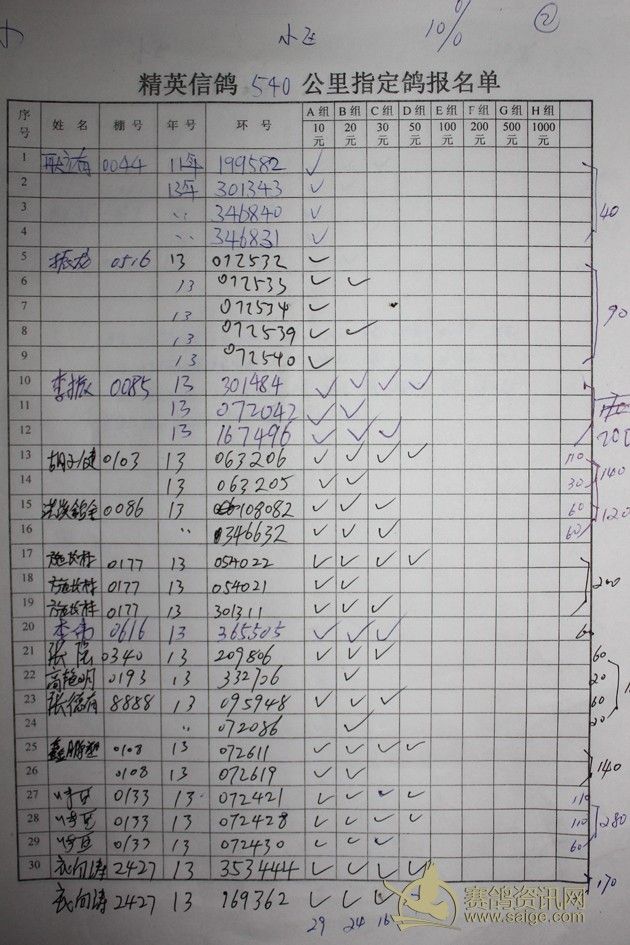 小飞 10% ②
精英信鸽 540 公里指定鸽报名单
序号 姓名 棚号 年号 环号 A组10元 B组20元 C组30元 D组50元 E组100元 F组200元 G组500元 H组1000元
1 0044 11年 199582 ✓
2 13年 301343 ✓
3 〃 346840 ✓
4 〃 346831 ✓ 40
5 振龙 0516 13 072532 ✓
6 13 072533 ✓ ✓
7 13 072534 ✓ 90
8 13 072539 ✓ ✓
9 13 072540 ✓
10 李振 0085 13 301484 ✓ ✓ ✓ ✓
11 13 072042 ✓ ✓
12 13 167496 ✓ ✓ ✓ 200
13 0103 13 063206 ✓ ✓ ✓ ✓ 110
14 13 063205 ✓ ✓ 30 140
15 0086 13 108082 ✓ ✓ ✓ 60
16 〃 346632 ✓ ✓ ✓ 60 120
17 施长林 0177 13 054022 ✓ ✓ ✓ ✓
18 施长林 0177 13 054021 ✓ ✓ 200
19 施长林 0177 13 301311 ✓ ✓ ✓
20 李伟 0616 13 365505 ✓ ✓ ✓ 60
21 0340 13 209806 ✓ ✓ ✓ 60
22 高艳明 0193 13 332726 ✓ 20
23 张德有 8888 13 095948 ✓ ✓ ✓ 60
24 〃 072086 ✓ 20
25 0108 13 072611 ✓ ✓ ✓ ✓
26 0108 13 072619 ✓ ✓ 140
27 0133 13 072421 ✓ ✓ ✓ ✓ 110
28 0133 13 072428 ✓ ✓ ✓ ✓ 110 280
29 0133 13 072430 ✓ ✓ ✓ 60
30 2427 13 353444 ✓ ✓ ✓ ✓
2427 13 169362 ✓ ✓ ✓ ✓ 170
29 24 16
赛鸽资讯网
www.saige.com